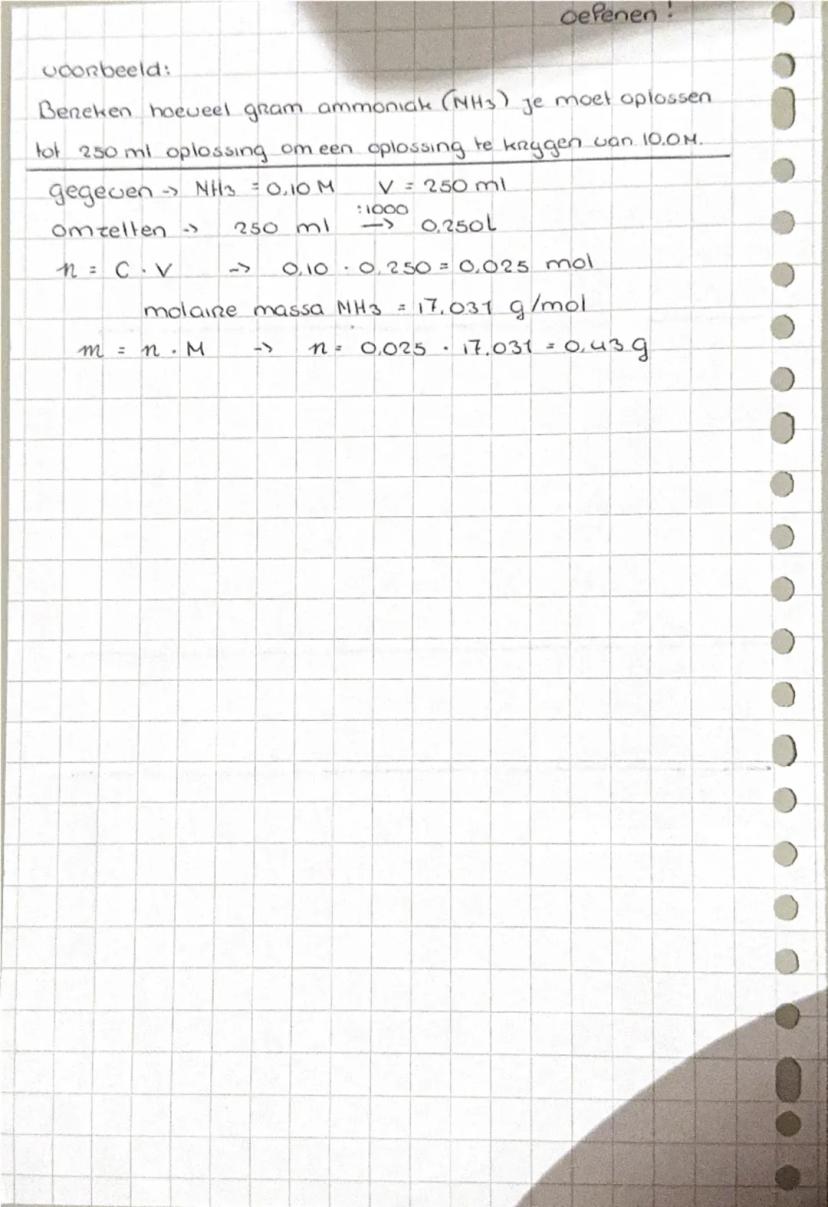 oefenen!
voorbeeld:
Bereken hoeveel gram ammoniak (NH3) je moet oplossen
tot 250 ml oplossing om een oplossing te krygen van 10.0M.
gegeven -> NH3 = 0,10 M V = 250 ml
:1000
omzetten -> 250 ml -> 0,250L
n = C · V -> 0,10 · 0,250 = 0,025 mol
molaire massa NH3 = 17,031 g/mol
m = n · M -> n = 0,025 · 17,031 = 0,43 g